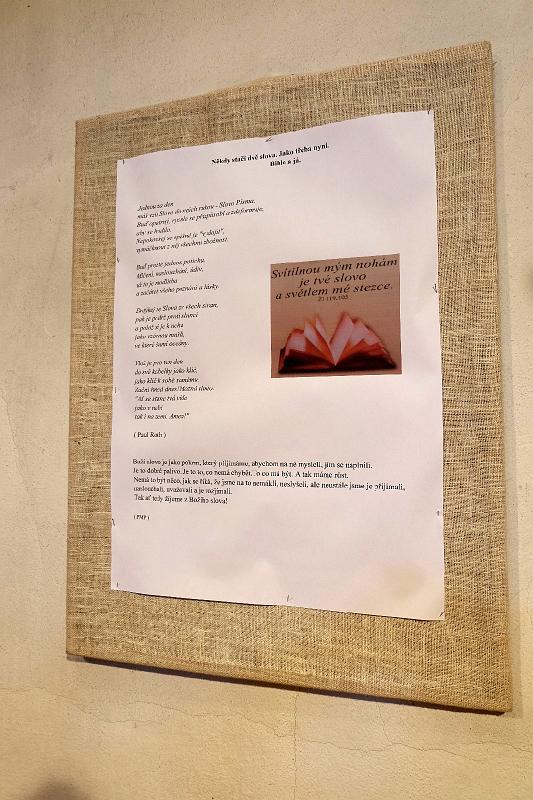 Někdy stačí dvě slova. Jako třeba nyní.
Bible a já.
Jednou za den
máš vzít Slovo do svých rukou - Slovo Písma.
Buď opatrný, rychle se přizpůsobí a zdeformuje,
aby se hodilo.
Nepokoušej se spěšně je "vydojit",
vymáčknout z něj všechnu zbožnost.
Buď prostě jednou potichu.
Mlčení, naslouchání, údiv,
už to je modlitba
a začátek všeho poznání a lásky.
Dotýkej se Slova ze všech stran,
pak je podrž proti slunci
a polož si je k uchu
jako vzácnou mušli,
ve které šumí oceány.
Vlož je pro ten den
do své kabelky jako klíč,
jako klíč k sobě samému.
Začni hned dnes! Možná slovy:
"Ať se stane tvá vůle
jako v nebi
tak i na zemi. Amen!"
( Paul Roth )
Svítilnou mým nohám
je tvé slovo
a světlem mé stezce.
Ž 119,105
Boží slovo je jako pokrm, který přijímáme, abychom na ně mysleli, jím se naplnili.
Je to dobré palivo. Je to to, co nemá chybět, o co má být. A tak máme růst.
Nemá to být něco, jak se říká, že jsme na to nemákli, neslyšeli, ale neustále jsme je přijímali,
naslouchali, uvažovali a je rozjímali.
Tak ať tedy žijeme z Božího slova!
( PMP )